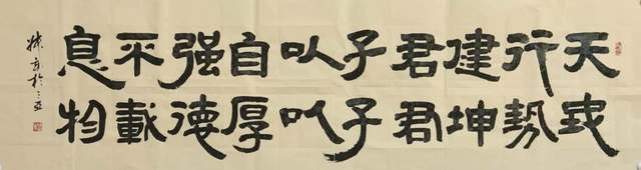 天行建君子以自强不息
地勢坤君子以厚德載物
於三亞